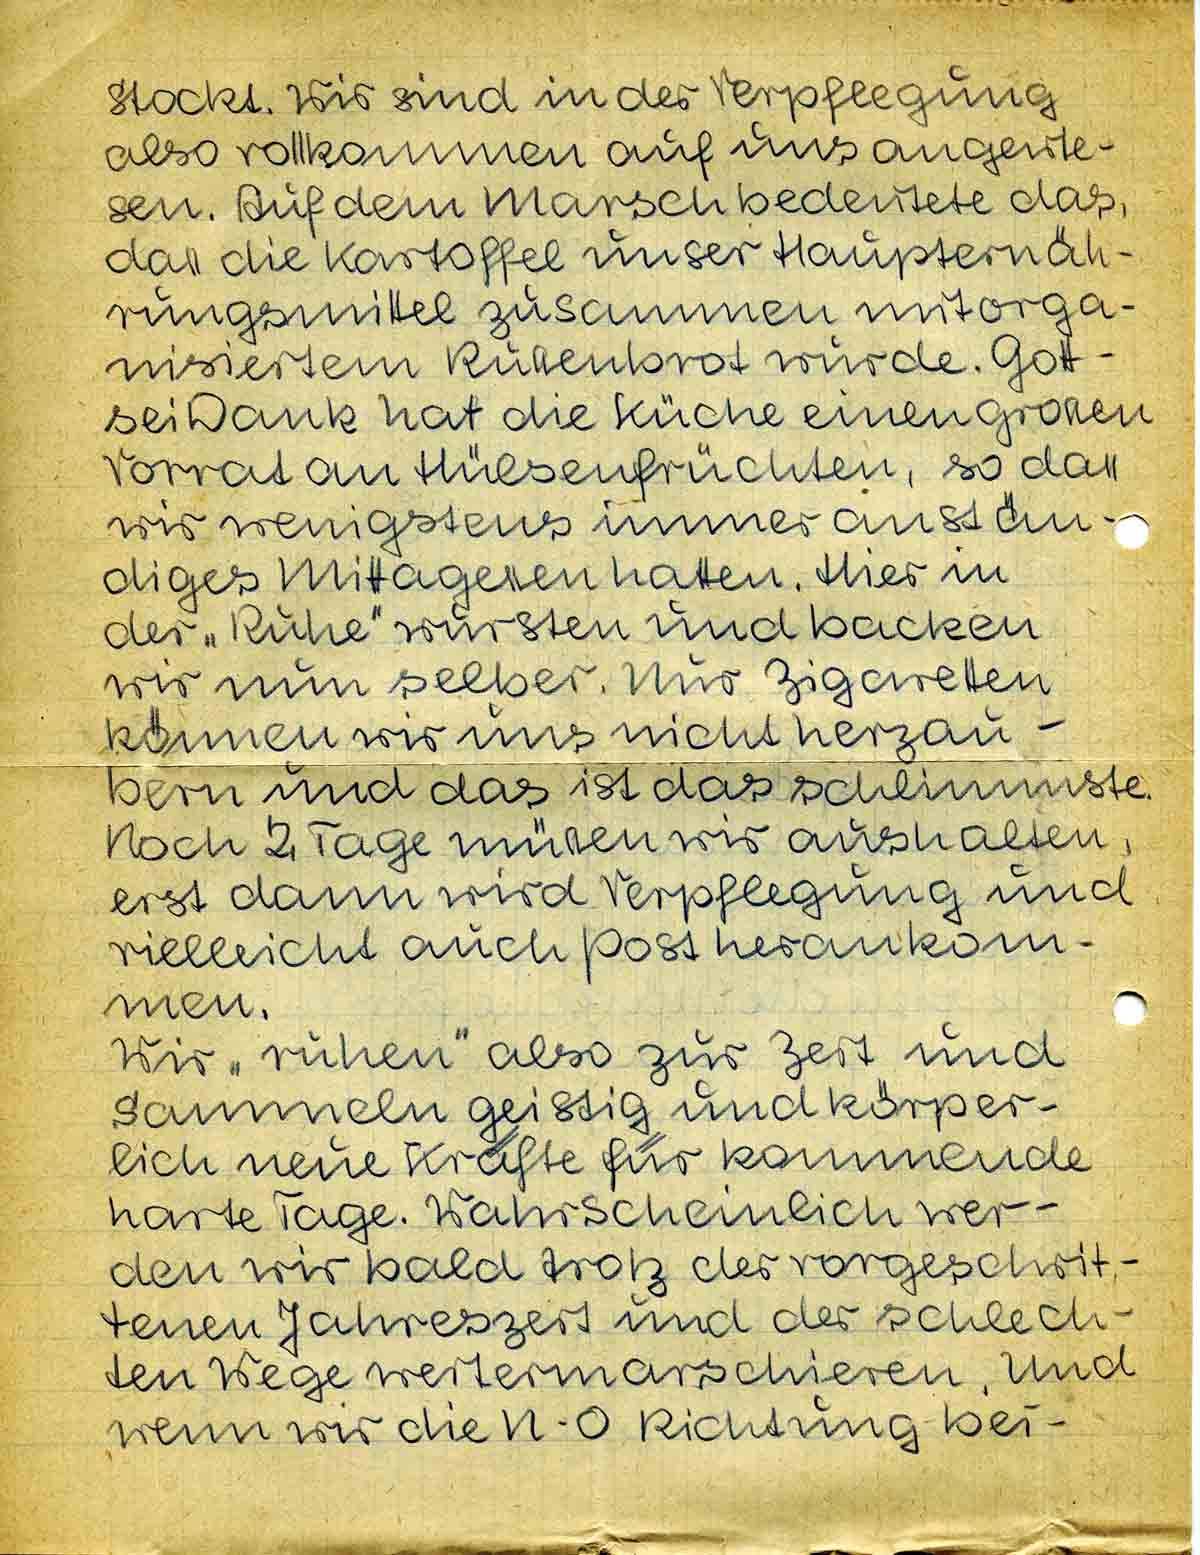 stockt. Wir sind in der Verpflegung
also vollkommen auf uns angewie-
sen. Auf dem Marsch bedeutete das,
daß die Kartoffel unser Haupternäh-
rungsmittel zusammen mit orga-
nisiertem Russenbrot wurde. Gott-
sei Dank hat die Küche einen großen
Vorrat an Hülsenfrüchten, so daß
wir wenigstens immer anstän-
diges Mittagessen hatten. Hier in
der „Ruhe" wursten und backen
wir nun selber. Nur Zigaretten
können wir uns nicht herzau-
bern und das ist das schlimmste.
Noch 2 Tage müssen wir aushalten,
erst dann wird Verpflegung und
vielleicht auch Post herankom-
men.
Wir „ruhen" also zur Zeit und
sammeln geistig und körper-
lich neue Kräfte für kommende
harte Tage. Wahrscheinlich wer-
den wir bald trotz der vorgeschrit-
tenen Jahreszeit und der schlech-
ten Wege weitermarschieren. Und
wenn wir die N-O Richtung bei-